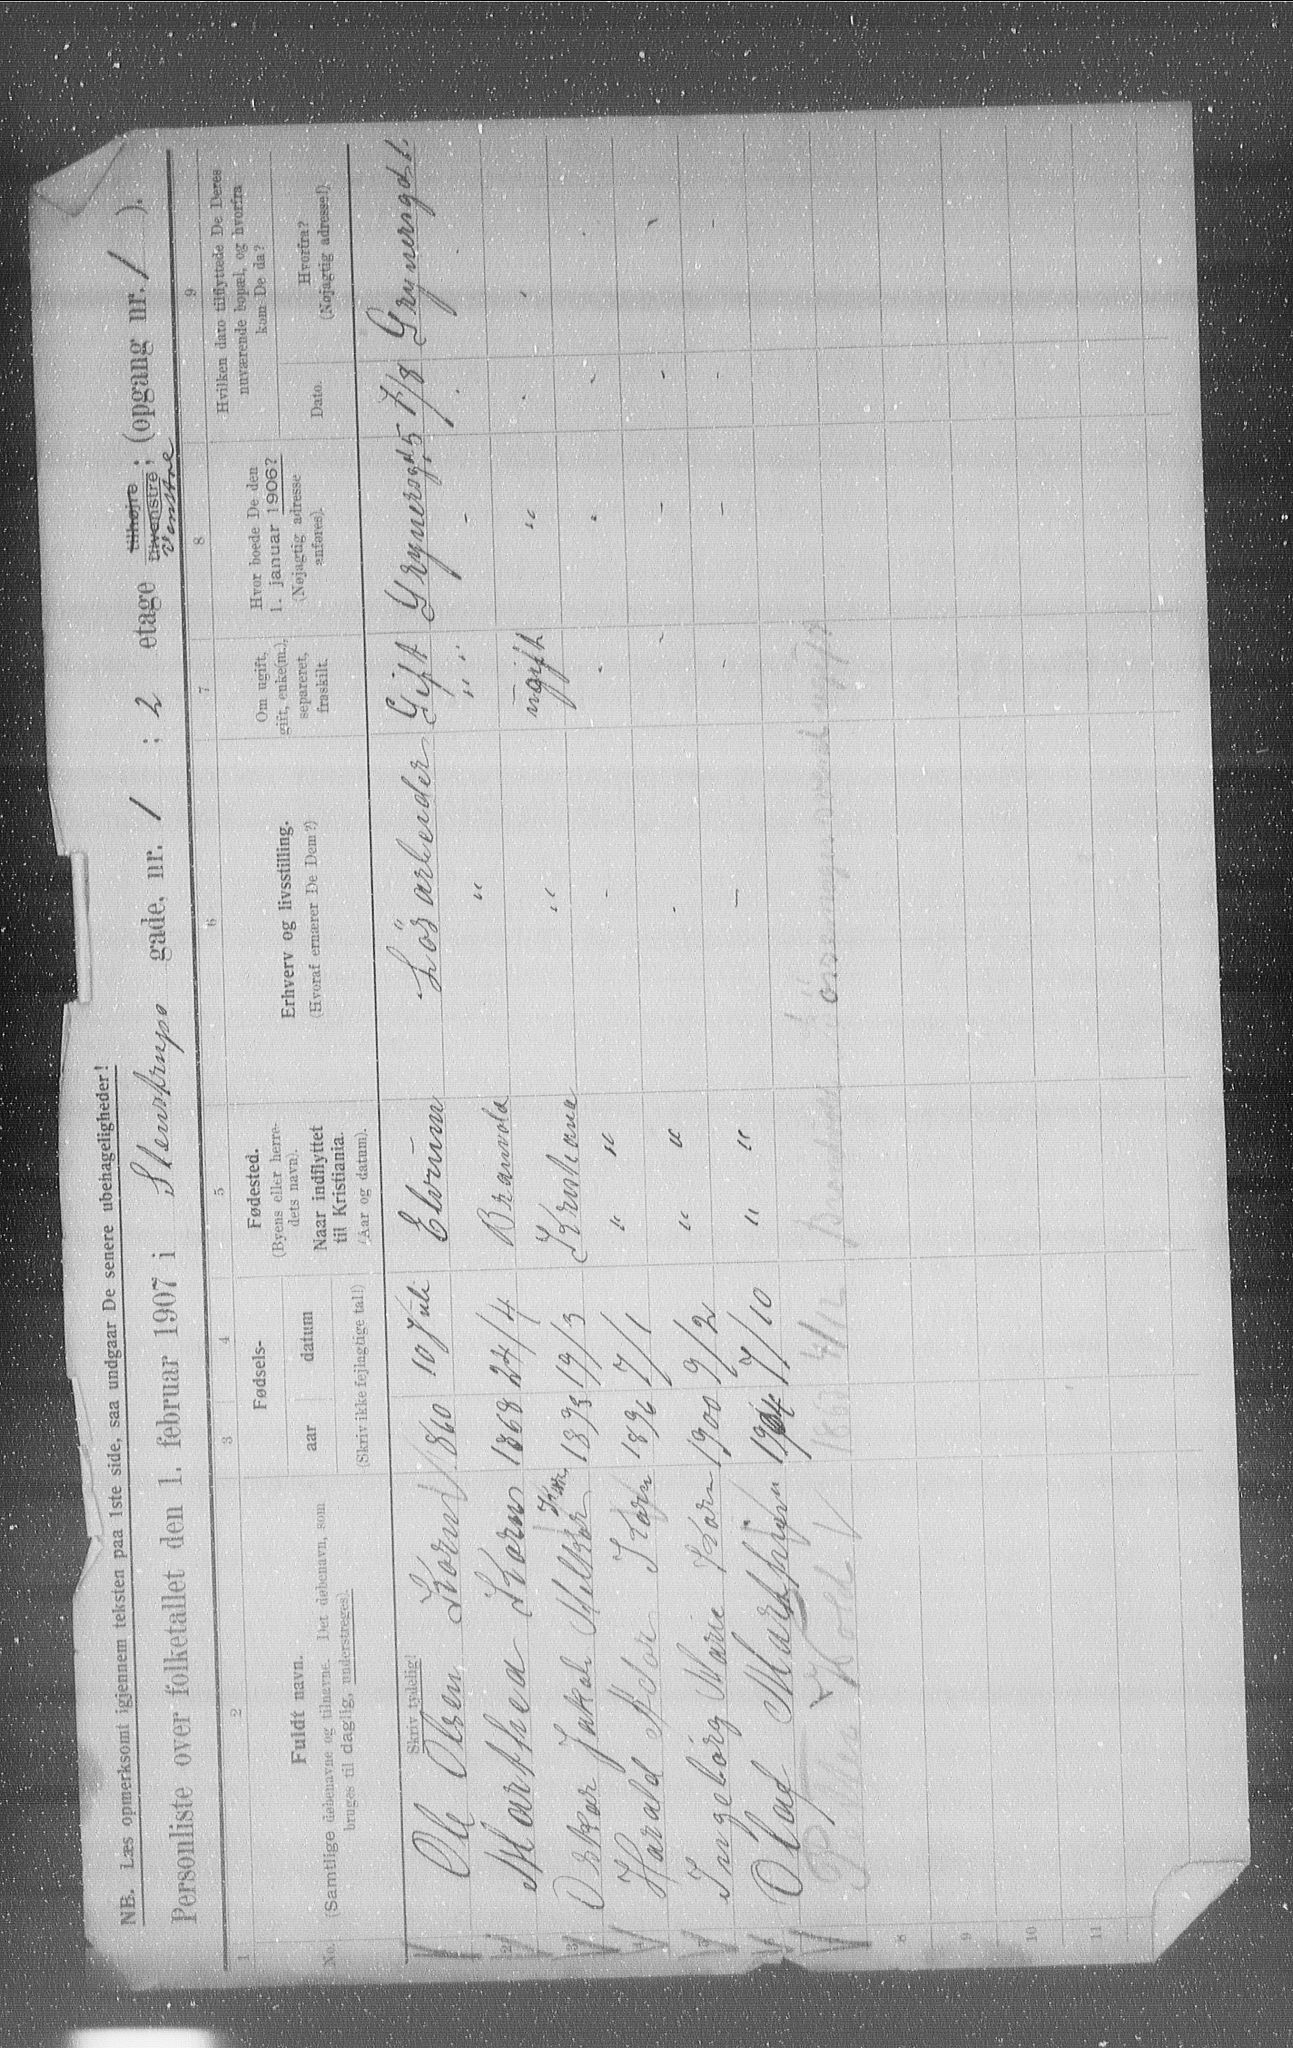 NB. Læs opmerksomt igjennem teksten paa 1ste side, saa undgaar De senere ubehageligheder!
Personliste over folketallet den 1. februar 1907 i Stenstrups gade, nr. 1 ; 2 etage tilhøjre tilvenstre venstre ; (opgang nr. 1 ).
1 2 3 4 5 6 7 8 9
No.
Fuldt navn.
(Samtlige døbenavne og tilnavne. Det døbenavn, som
bruges til daglig, understreges).
Fødsels-
aar datum
(Skriv ikke fejlagtige tal!)
Fødested.
(Byens eller herre-
dets navn).
Naar indflyttet
til Kristiania.
(Aar og datum).
Erhverv og livsstilling.
(Hvoraf ernærer De Dem?)
Om ugift,
gift, enke(m.),
separeret,
fraskilt.
Hvor boede De den
1. januar 1906?
(Nøjagtig adresse
anføres).
Hvilken dato tilflyttede De Deres
nuværende bopæl, og hvorfra
kom De da?
Dato.
Hvorfra?
(Nøjagtig adresse!)
Skriv tydelig!
Ole Olsen Korn 1860 10 Juli Elvrum Lösarbeider Gift Grynersgd. 5 1/8 Grynersgd.
2 Marthea Korn 1868 24/4 Branvold " " -
3 Oskar Jakob Melkior 1893 19/3 " ugift "
4 Harald Ador Korn 1896 7/1 " " - -
5 Ingeborg Marie Korn 1900 9/2 " " - - -
6 Olaf 1904 7/10 " " - - - -
Hold ugift
8
9
10
11